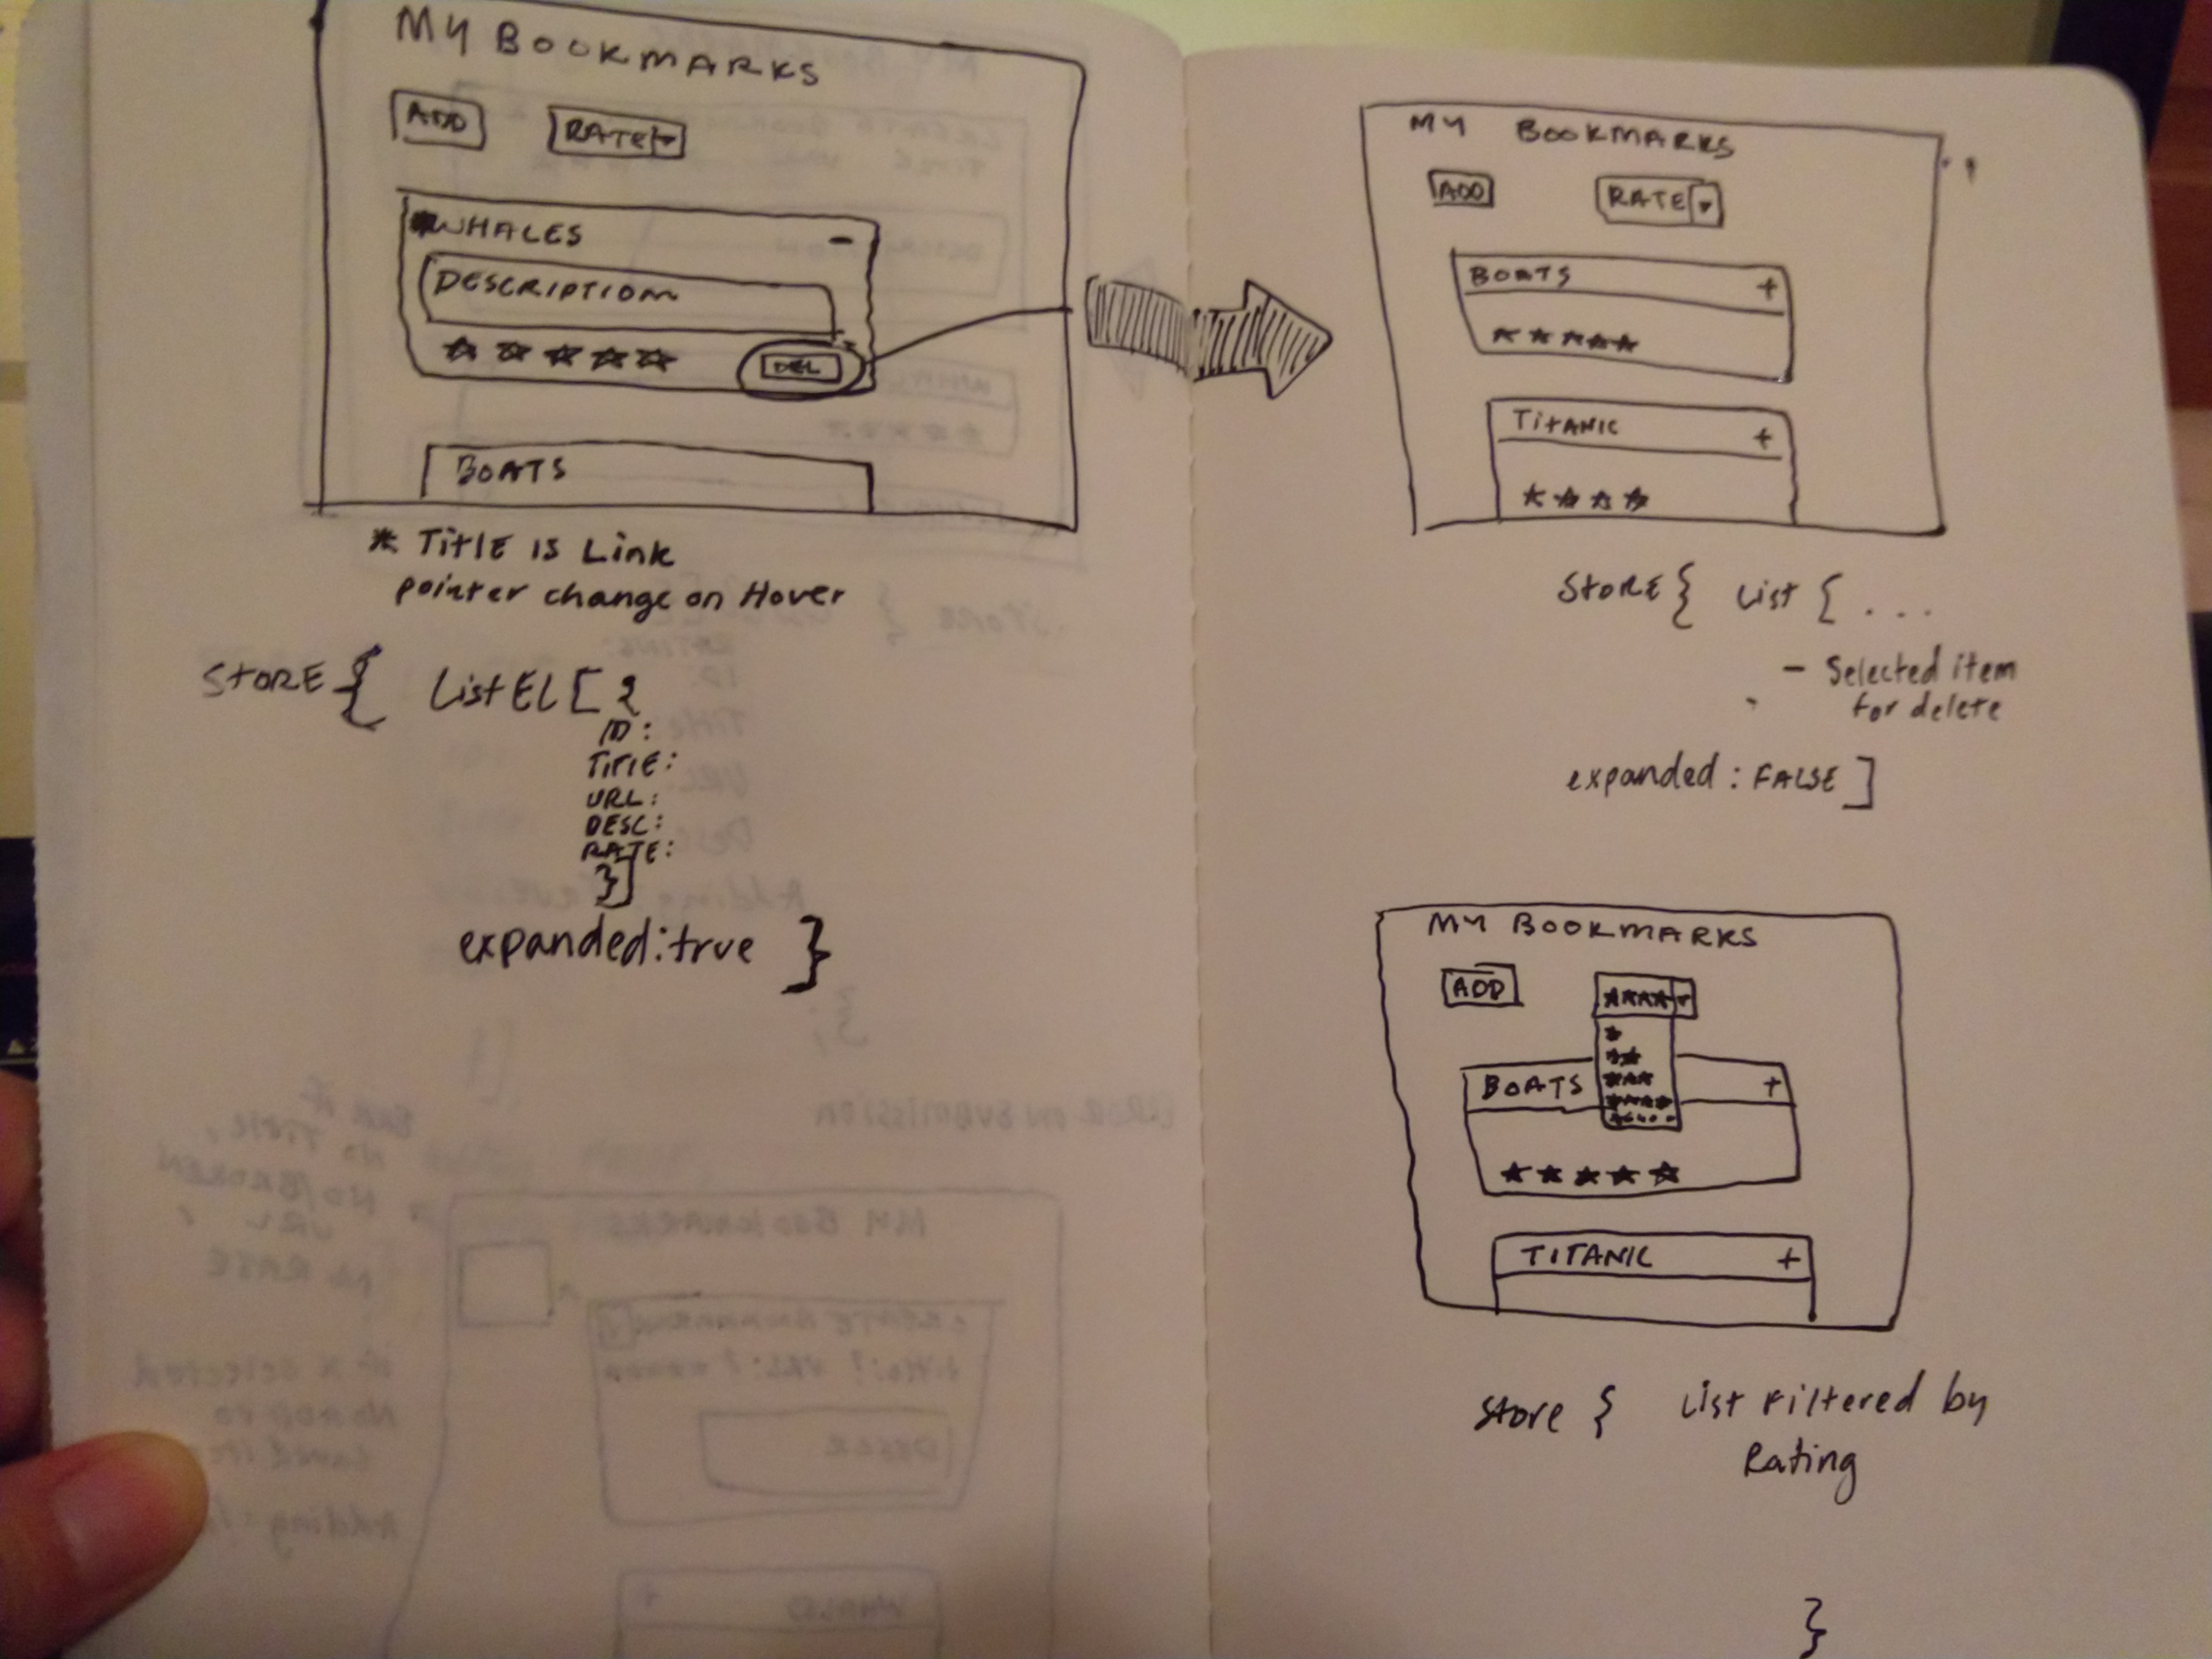 MY BOOKMARKS
ADD RATE
*WHALES -
DESCRIPTION
★ ★ ★ ★ ★ DEL
BOATS
* TITLE IS Link
pointer change on Hover
STORE { ListEL [ {
ID:
TITLE:
URL:
DESC:
RATE:
}]
expanded:true }
MY BOOKMARKS
ADD RATE
BOATS +
★ ★ ★ ★ ★
TITANIC +
★ ★ ★ ★
STORE { List { ...
- Selected item
for delete
expanded: FALSE ]
MY BOOKMARKS
ADD ★★★★
★
★★
★★★
★★★★
BOATS +
★ ★ ★ ★ ★
TITANIC +
Store { List Filtered by
Rating
}